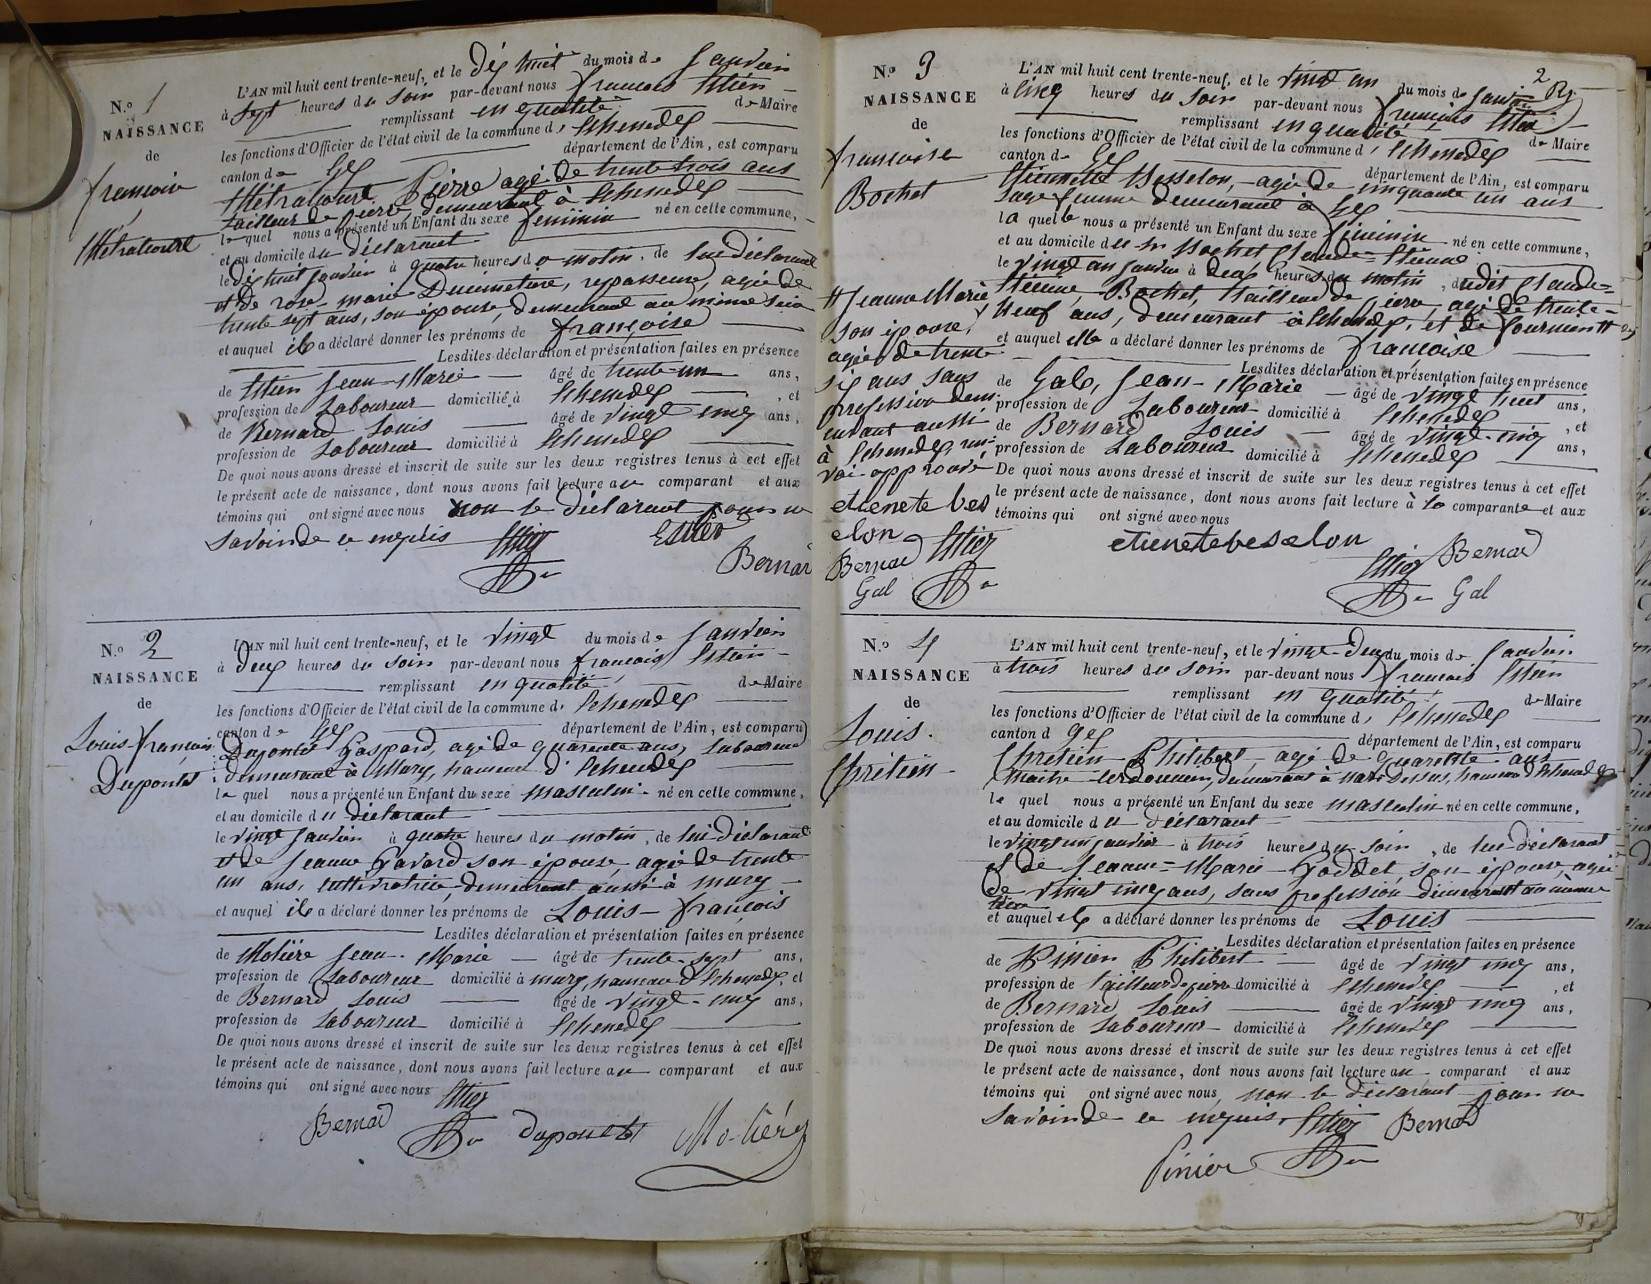 N.o 1
NAISSANCE
de
françoise
Métratoural
L'AN mil huit cent trente-neuf, et le dix huit du mois de Janvier
à Sept heures du Soir par-devant nous françois
remplissant en qualité de Maire
les fonctions d'Officier de l'état civil de la commune d' Echenevex
canton de Gex département de l'Ain, est comparu
Pierre agé de trente trois ans
tailleur de pierre demeurant à Echenevex
lequel nous a présenté un Enfant du sexe feminin né en cette commune,
et au domicile du déclarant
le dix huit janvier à quatre heures du matin, de lui déclarant
et de rose-marie repasseuse, agée de
trente sept ans, son épouse, demeurant au même lieu
et auquel il a déclaré donner les prénoms de françoise
Lesdites déclaration et présentation faites en présence
de Jean-Marie âgé de trente-un ans,
profession de Laboureur domicilié à Echenevex, et
de Bernard Louis âgé de vingt cinq ans,
profession de Laboureur domicilié à Echenevex
De quoi nous avons dressé et inscrit de suite sur les deux registres tenus à cet effet
le présent acte de naissance, dont nous avons fait lecture au comparant et aux
témoins qui ont signé avec nous non le déclarant pour ne
Savoir de ce enquis
Bernar
N.o 2
NAISSANCE
de
Louis-françois
Dupontet
L'AN mil huit cent trente-neuf, et le vingt du mois de Janvier
à deux heures du Soir par-devant nous françois
remplissant en qualité de Maire
les fonctions d'Officier de l'état civil de la commune d' Echenevex
canton de Gex département de l'Ain, est comparu
Dupontet Gaspard, agé de quarante ans, laboureur
demeurant à Mury, hameau d'Echenevex
lequel nous a présenté un Enfant du sexe masculin né en cette commune,
et au domicile du déclarant
le vingt Janvier à quatre heures du matin, de lui déclarant
et de Jeanne Gavard son épouse, agée de trente
un ans, cultivatrice, demeurant aussi à mury
et auquel il a déclaré donner les prénoms de Louis-françois
Lesdites déclaration et présentation faites en présence
de Molière Jean-Marie âgé de trente-sept ans,
profession de Laboureur domicilié à mury, hameau d'Echenevex, et
de Bernard Louis âgé de vingt-cinq ans,
profession de Laboureur domicilié à Echenevex
De quoi nous avons dressé et inscrit de suite sur les deux registres tenus à cet effet
le présent acte de naissance, dont nous avons fait lecture au comparant et aux
témoins qui ont signé avec nous
Bernad
N.o 3
NAISSANCE
de
françoise
Bochet
2
L'AN mil huit cent trente-neuf, et le vingt un du mois de Janvier
à cinq heures du Soir par-devant nous françois
remplissant en qualité de Maire
les fonctions d'Officier de l'état civil de la commune d' Echenevex
canton de Gex département de l'Ain, est comparu
Etiennette Besselon, agée de cinquante un ans
Sage femme demeurant à Gex
laquelle nous a présenté un Enfant du sexe féminin né en cette commune,
et au domicile du Sr Bochet Claude-Etienne
le vingt un Janvier à deux heures du matin, dudit Claude=
Etienne Bochet, tailleur de pierre, agé de trente-
neuf ans, demeurant à Echenevex, et de fourment #
# Jeanne Marie
son épouse,
agée de trente
six ans sans
profession dem
eurant aussi
à Echenevex ren-
voi approuvé
etienete bes
elon
Bernad
Gal
et auquel elle a déclaré donner les prénoms de françoise
Lesdites déclaration et présentation faites en présence
de Gal, Jean-Marie âgé de vingt huit ans,
profession de Laboureur domicilié à Echenevex, et
de Bernard Louis âgé de vingt-cinq ans,
profession de Laboureur domicilié à Echenevex
De quoi nous avons dressé et inscrit de suite sur les deux registres tenus à cet effet
le présent acte de naissance, dont nous avons fait lecture à la comparante et aux
témoins qui ont signé avec nous
etienetebeselon
Bernad
Gal
N.o 4
NAISSANCE
de
Louis
Chrétien
L'AN mil huit cent trente-neuf, et le vingt-deux du mois de Janvier
à trois heures du soir par-devant nous françois
remplissant en qualité de Maire
les fonctions d'Officier de l'état civil de la commune d' Echenevex
canton d gex département de l'Ain, est comparu
Chrétien Philibert, agé de quarante ans
maître cordonnier, demeurant à hameau d'Echenevex
lequel nous a présenté un Enfant du sexe masculin né en cette commune,
et au domicile du déclarant
le vingt un janvier à trois heures du soir, de lui déclarant
et de Jeanne=Marie Goddet, son épouse, agée
de vingt cinq ans, sans profession demeurant au même
lieu
et auquel il a déclaré donner les prénoms de Louis
Lesdites déclaration et présentation faites en présence
de Pinier Philibert âgé de vingt cinq ans,
profession de tailleur de pierre domicilié à Echenevex, et
de Bernard Louis âgé de vingt cinq ans,
profession de Laboureur domicilié à Echenevex
De quoi nous avons dressé et inscrit de suite sur les deux registres tenus à cet effet
le présent acte de naissance, dont nous avons fait lecture au comparant et aux
témoins qui ont signé avec nous, non le déclarant pour ne
Savoir de ce enquis
Bernad
Pinier